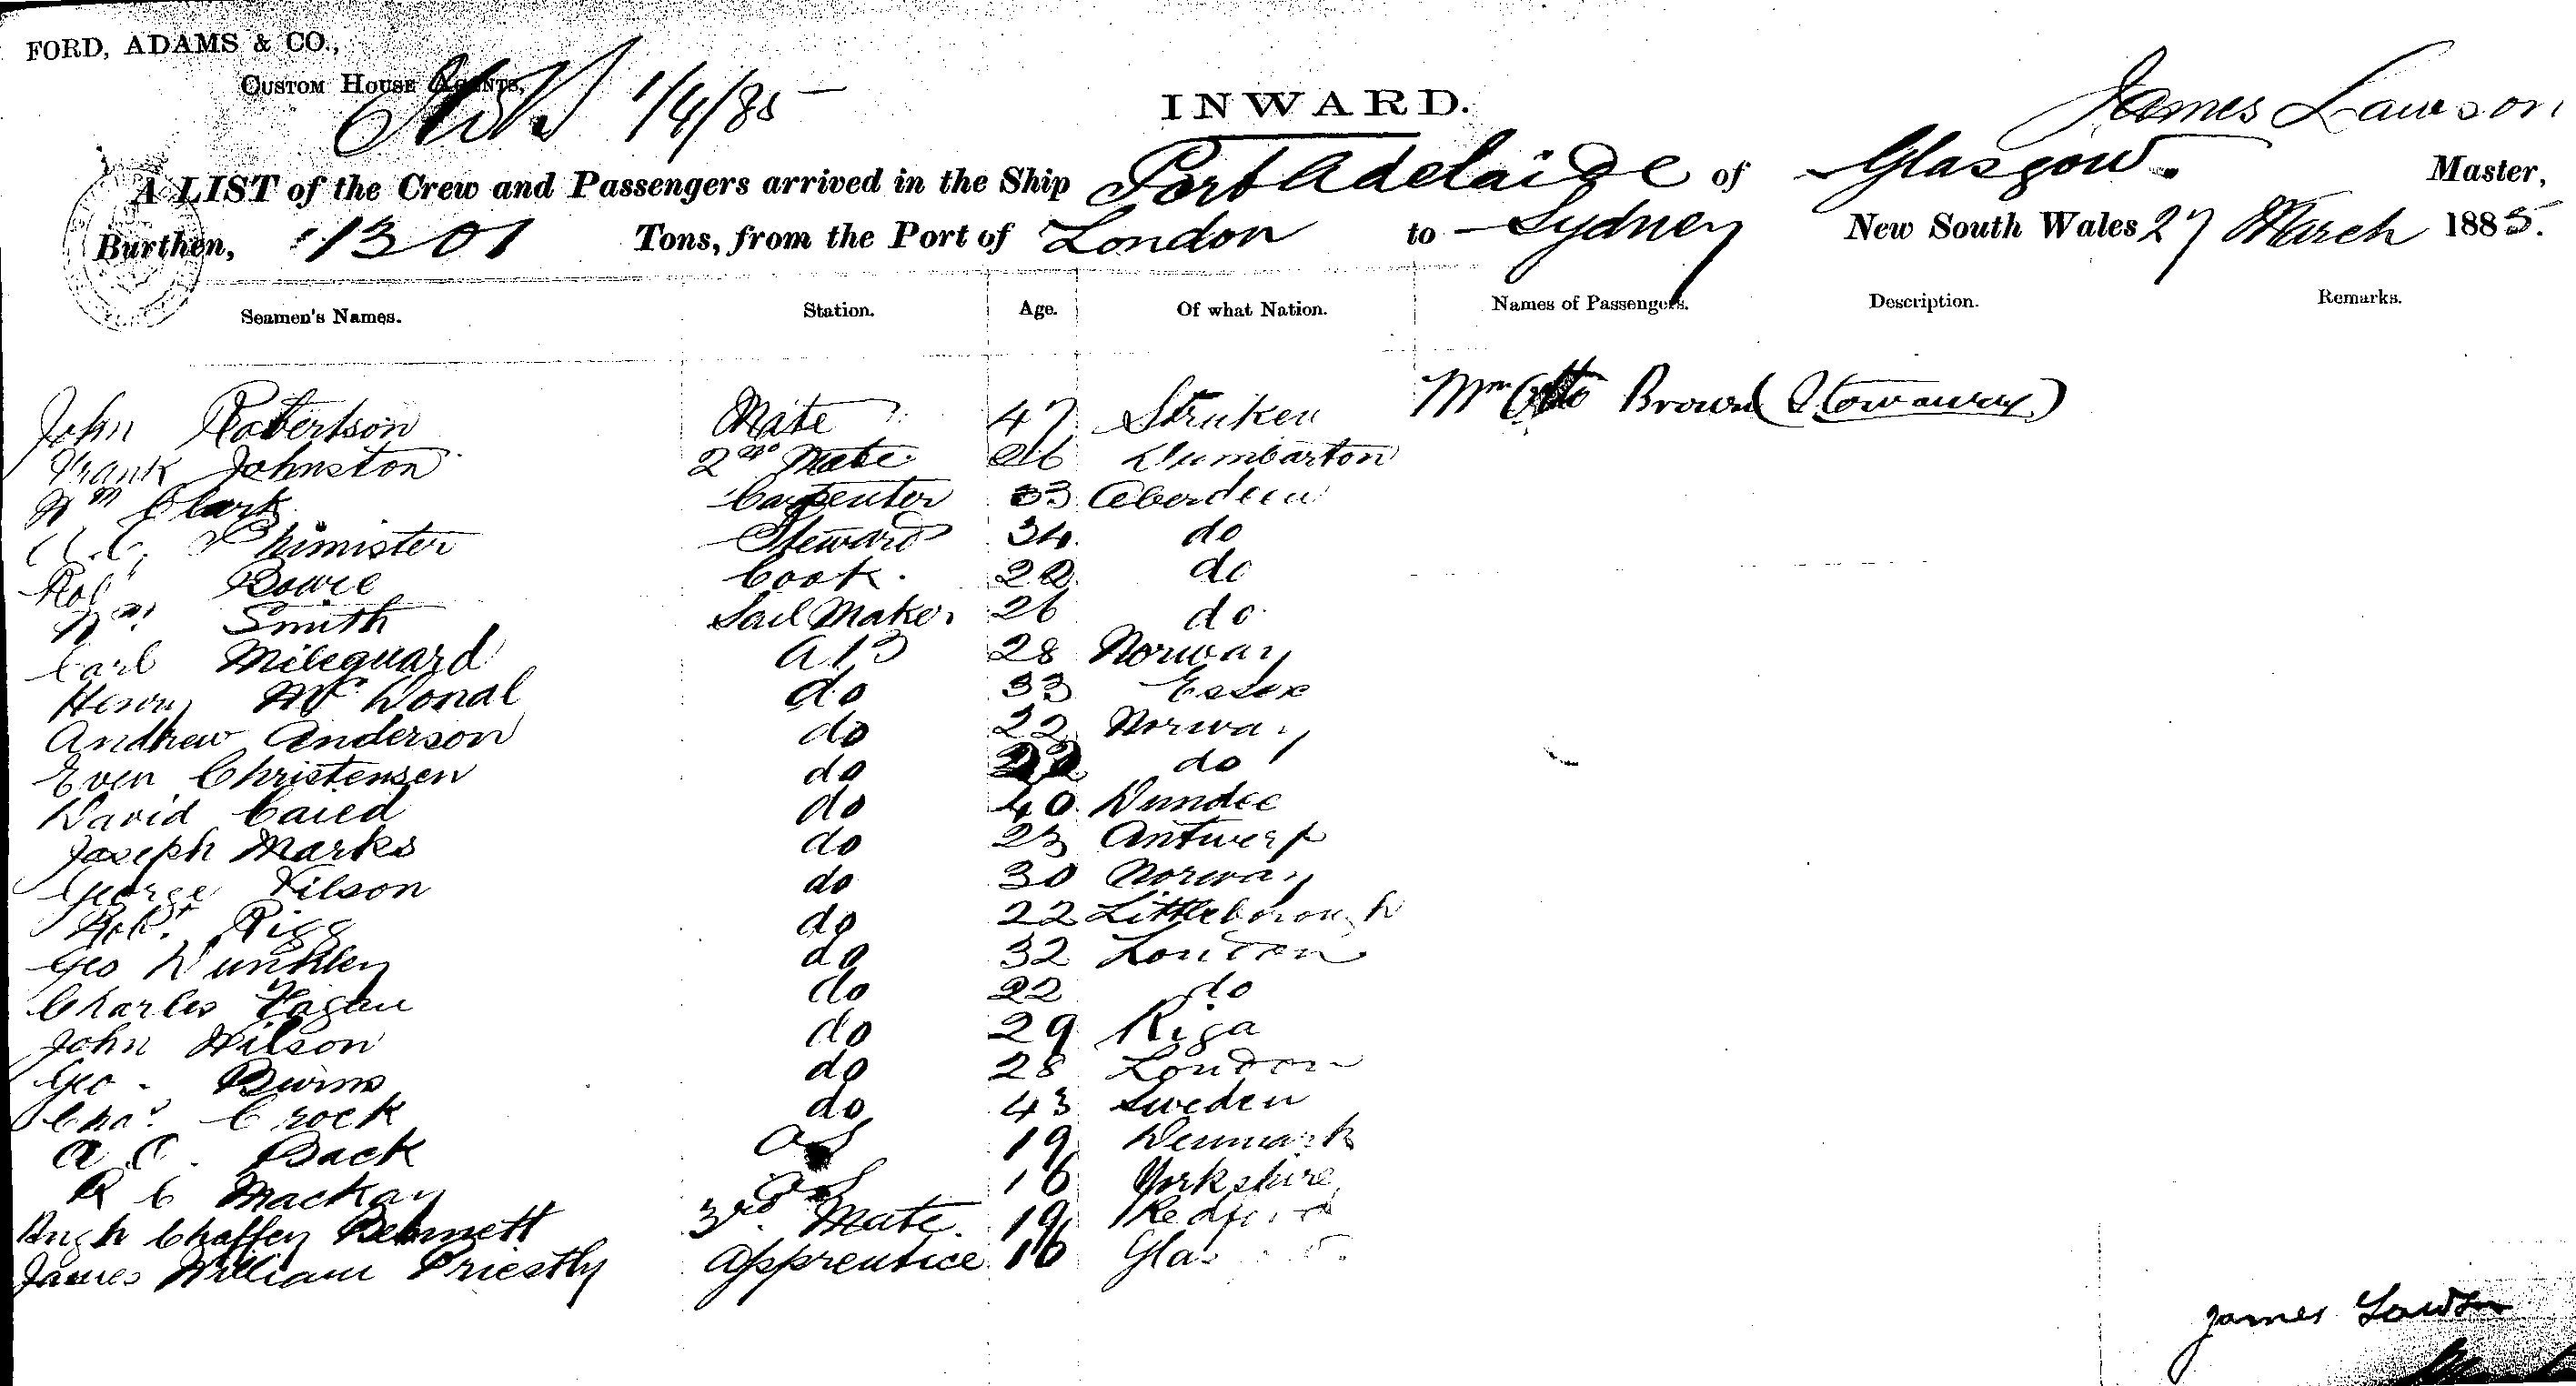 FORD, ADAMS & CO.,
CUSTOM HOUSE AGENTS,
1/4/85
INWARD.
James Lawson
A LIST of the Crew and Passengers arrived in the Ship Port Adelaide of Glasgow. Master,
Burthen, 1301 Tons, from the Port of London to Sydney New South Wales 27 March 1885.
Seamen's Names. Station. Age. Of what Nation. Names of Passengers. Description. Remarks.
John Robertson Mate 47 Struken Mr Otto Brown (Stowaway)
Frank Johnston 2nd Mate 26 Dumbarton
Wm Clark Carpenter 33 Aberdeen
Phimister Steward 34 do
Robt Bowie Cook. 22 do
Wm Smith Sail Maker 26 do
Carl Mileguard AB 28 Norway
Henry Mc Donal do 33 Essex
Andrew Anderson do 22 Norway
Even Christensen do 22 do
David Caied do 40 Dundee
Joseph Marks do 23 Antwerp
George Nilson do 30 Norway
Robt. Rigg do 22 Littleborough
Geo Dunkley do 32 London
Charles Fagan do 22 do
John Wilson do 29 Riga
Geo - Burns do 28 London
Chas. Crock do 43 Sweden
A. C. Back OS 19 Denmark
R C Mackay OS 16 Yorkshire
Hugh Chaffey Bennett 3rd Mate. 19
James William Priestly Apprentice 16
James Lawson